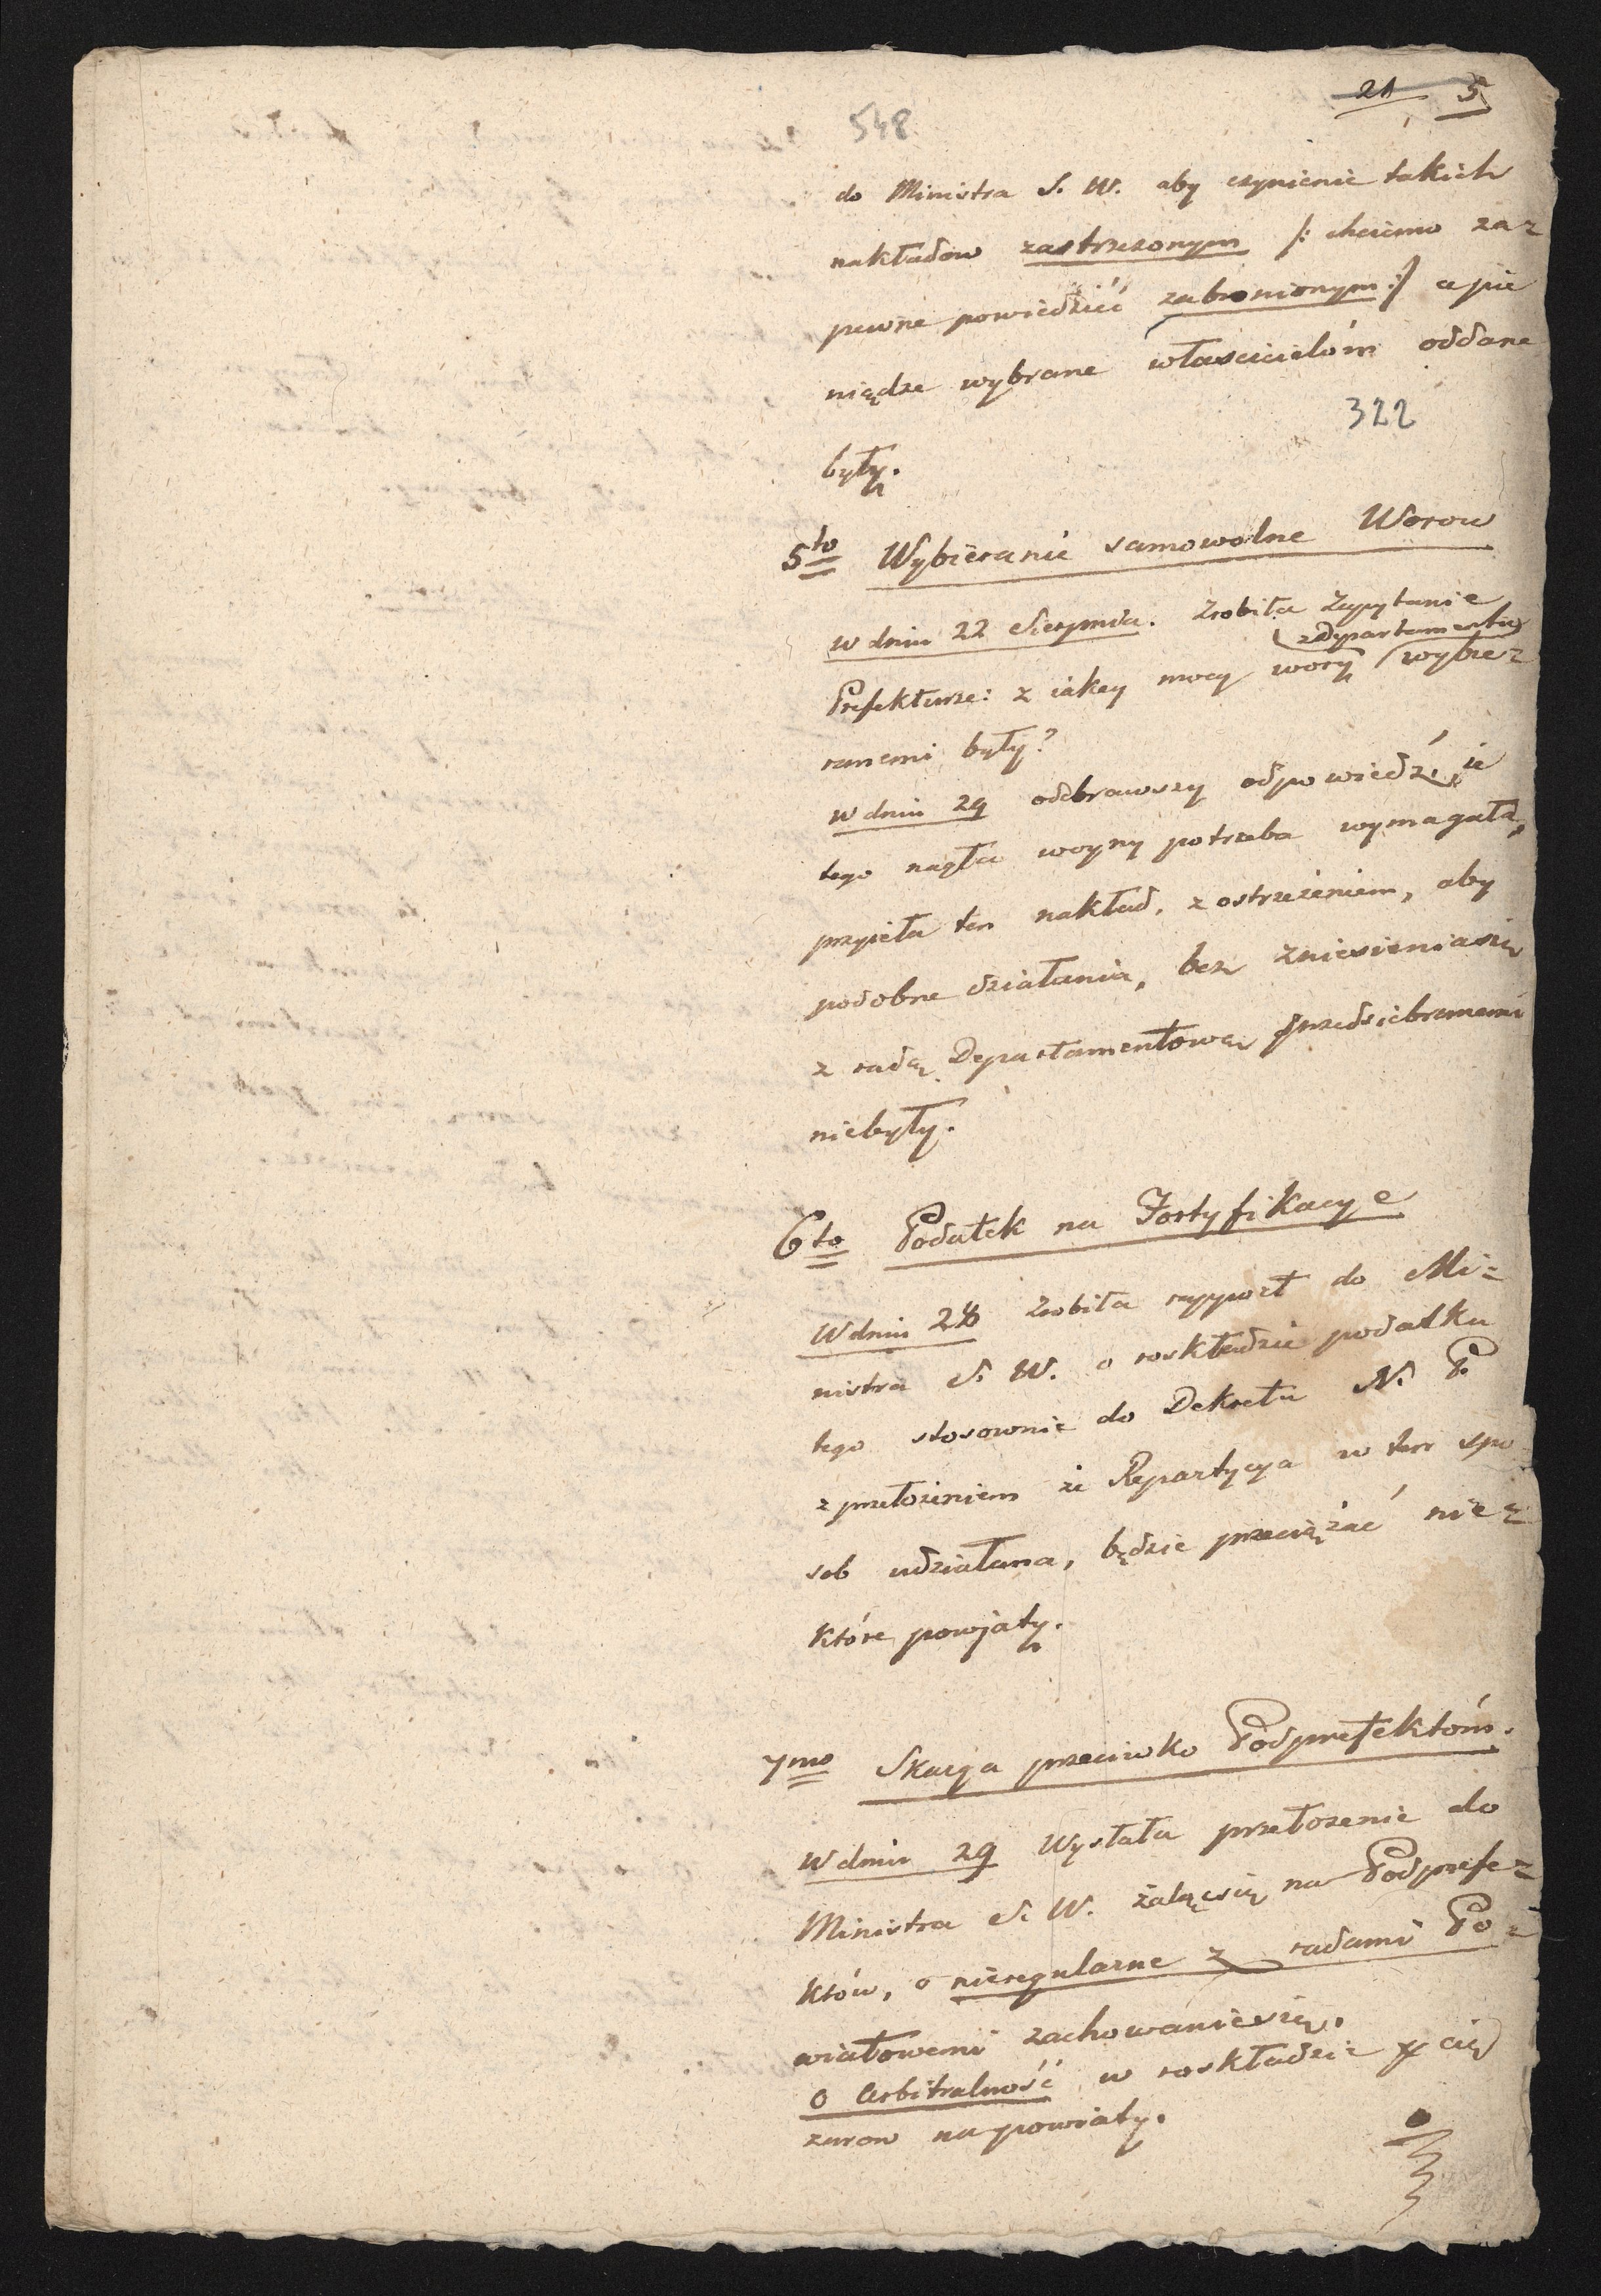 21 5
548
do Ministra S. W. aby czynienie takich
nakładow zastrzezonym /: chciano za=
pewne powiedzieć zabronionym :/ a pie
niądze wybrane właścicielóm oddane
322
były.
5to Wybieranie samowolne Worow
w dniu 22 Sierpnia. Zrobiła Zapytanie
z Departamentu
Prefekturze: z iakey mocy wory wybie=
ranemi były?
w dniu 29 odebrawszy odpowiedź, że
tego nagła woyny potrzeba wymagała,
przyięła ten nakład, z ostrzeżeniem, aby
podobne działania, bez zniesienia się
z radą Departamentową przedsiebranemi
niebyły.
6to Podatek na Fortyfikacye
W dniu 28 Zrobiła rapport do Mi=
nistra S. W. o roskładzie podatku
tego stosownie do Dekretu N. P.
z przełożeniem że Repartycya w ten spo
sob udziałana, będzie przeciążać nie=
które powjaty.
7mo Skarga przeciwko Podprefektóm.
W dniu 29 Wysłała przełozenie do
Ministra S. W. żaląc się na Podprefe=
któw, o nieregularne z radami Po=
wiatowemi zachowanie się,
o Arbitralność w roskładzie cię
zarow na powiaty.